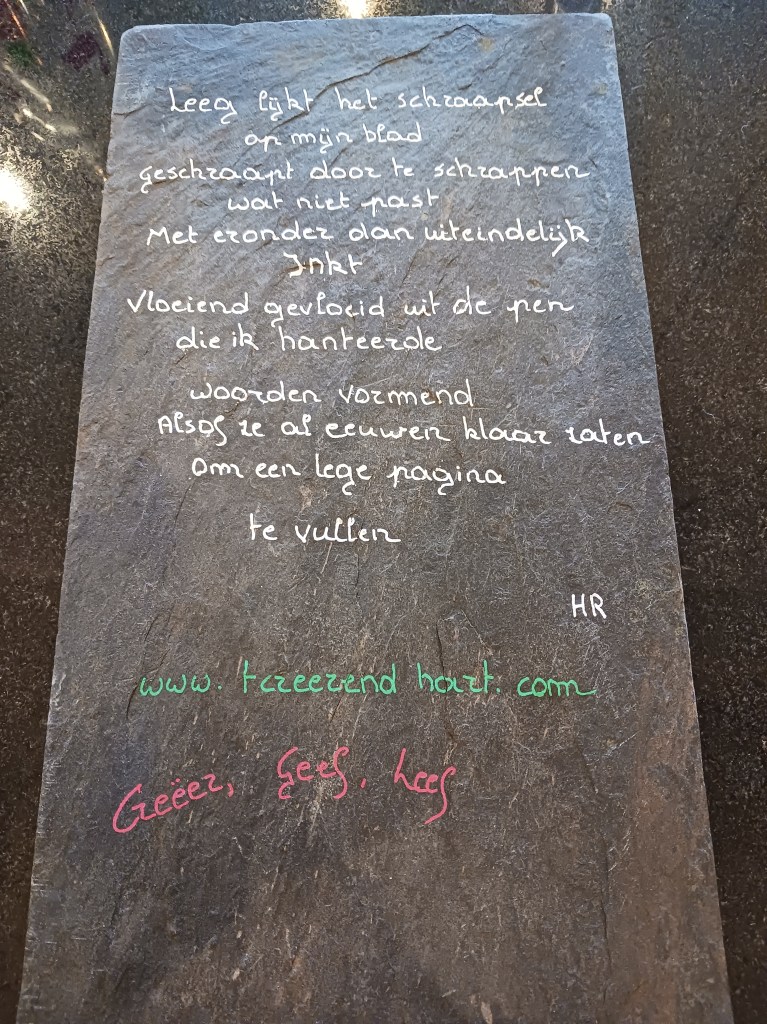 Leeg lijkt het schraapsel
op mijn blad
geschraapt door te schrappen
wat niet past
Met eronder dan uiteindelijk
Inkt
Vloeiend gevloeid uit de pen
die ik hanteerde
woorden vormend
Alsof ze al eeuwen klaar zaten
Om een lege pagina
te vullen
HR
www.tcreerendhart.com
Creëer, Geef, Leef